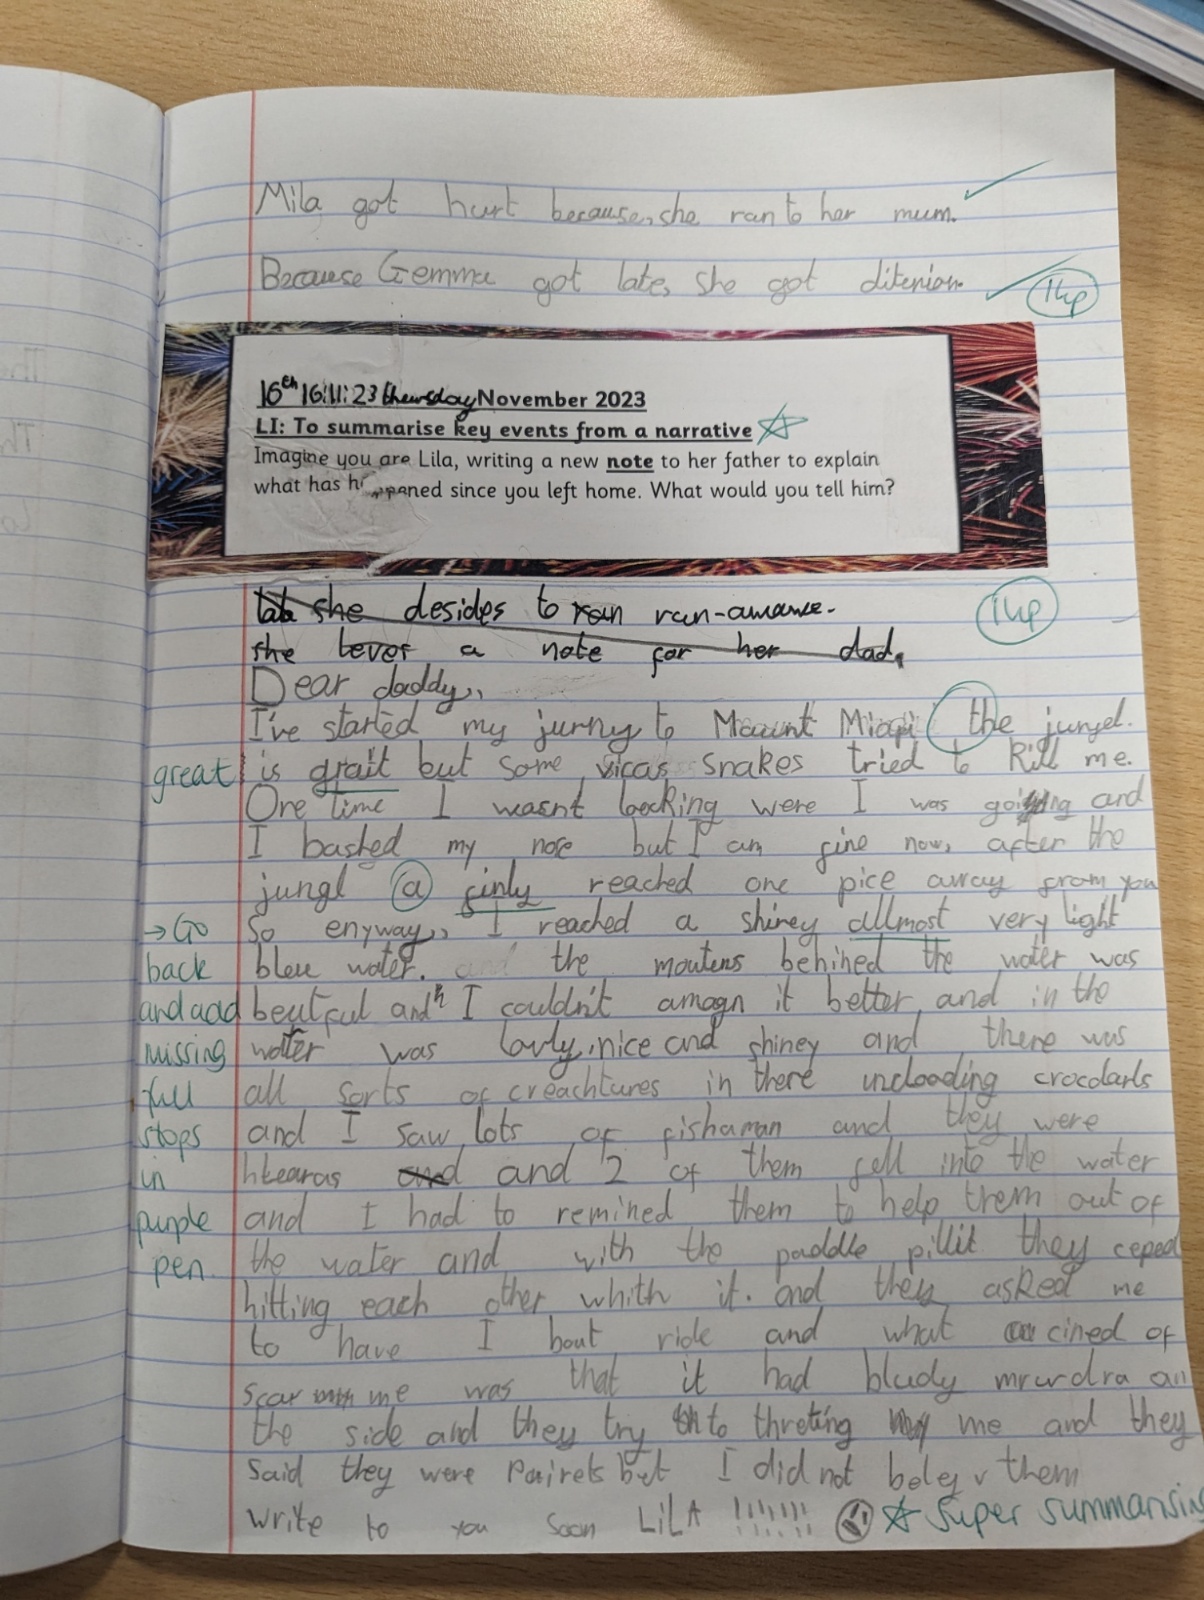 Mila got hurt because, she ran to her mum.
Because Gemma got late, she got ditenion.
1hp
16th 16:11:23 thursday November 2023
LI: To summarise key events from a narrative
Imagine you are Lila, writing a new note to her father to explain
what has happened since you left home. What would you tell him?
1hp
she desides to ran ran-awawe.
she lever a note for her dad,
Dear daddy,,
I've started my jurny to Mauunt Miapi the jungel.
great is grait but some vicas snakes tried to kill me.
One time I wasnt loocking were I was going and
I bashed my nose but I am fine now, after the
jungl a finly reached one pice away from you
→ Go so enyway,, I reached a shiney allmost very light
back bleu water. and the moutens behined the water was
and add beutful and I couldn't amagn it better, and in the
missing water was lovly, nice and shiney and there was
full all sorts of creachtures in there incloading crocdarls
stops and I saw lots of fishaman and they were
in htearas and and 2 of them fell into the water
purple and I had to remined them to help them out of
pen. the water and with the paddle pillit they ceped
hitting each other whith it. and they asked me
to have I bout ride and what cined of
scar me was that it had bludy mrurdra an
the side and they try to threting me and they
said they were Pairets but I did not beleyv them
write to you soon LiLA !!!!!!!! ☆ Super summarising